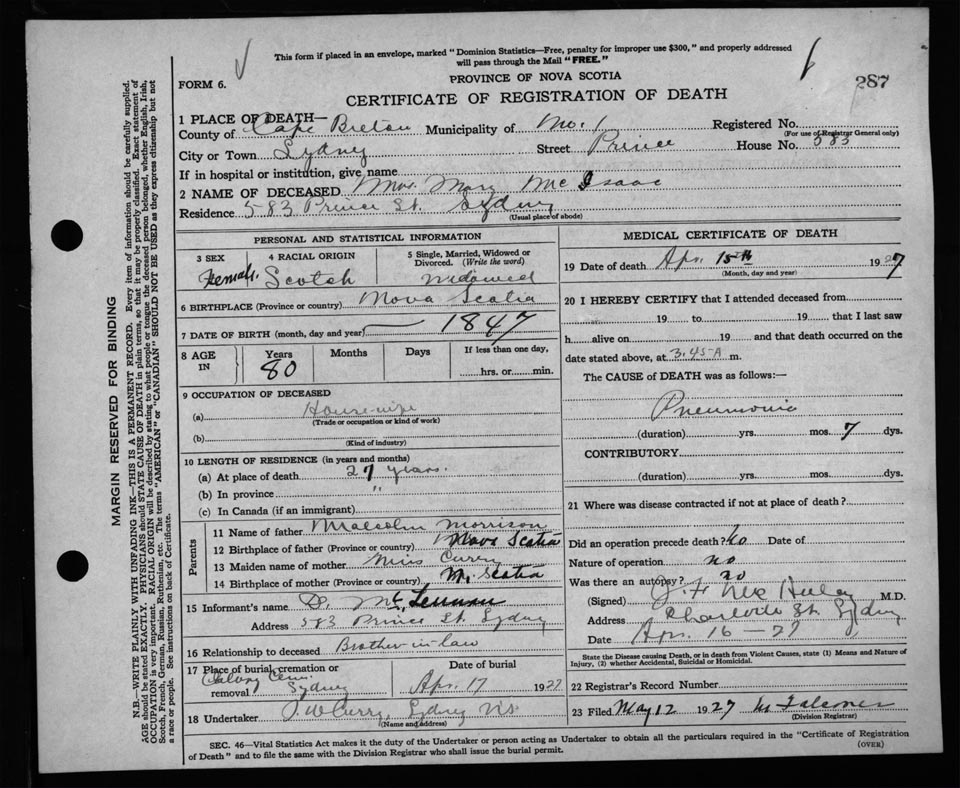 This form if placed in an envelope, marked "Dominion Statistics—Free, penalty for improper use $300," and properly addressed
will pass through the Mail "FREE."
FORM 6.
PROVINCE OF NOVA SCOTIA
287
CERTIFICATE OF REGISTRATION OF DEATH
1 PLACE OF DEATH—
County of Cape Breton Municipality of No. 1 Registered No.
(For use of Registrar General only)
City or Town Sydney Street Prince House No. 583
If in hospital or institution, give name
2 NAME OF DECEASED Mrs. Mary McIsaac
Residence 583 Prince St. Sydney
(Usual place of abode)
PERSONAL AND STATISTICAL INFORMATION
3 SEX 4 RACIAL ORIGIN 5 Single, Married, Widowed or
Divorced. (Write the word)
Female. Scotch Widowed
6 BIRTHPLACE (Province or country) Nova Scotia
7 DATE OF BIRTH (month, day and year) — 1847
8 AGE IN Years Months Days If less than one day,
80 hrs. or min.
9 OCCUPATION OF DECEASED
(a) House-wife
(Trade or occupation or kind of work)
(b)
(Kind of industry)
10 LENGTH OF RESIDENCE (in years and months)
(a) At place of death 27 years.
(b) In province "
(c) In Canada (if an immigrant)
Parents
11 Name of father Malcolm Morrison
12 Birthplace of father (Province or country) Nova Scotia
13 Maiden name of mother Miss Curry
14 Birthplace of mother (Province or country) N. Scotia
15 Informant's name D. McLennan
Address 583 Prince St. Sydney
16 Relationship to deceased Brother-in-law
17 Place of burial, cremation or removal Date of burial
Calvary Cem. Sydney Apr. 17 1927
18 Undertaker J. W Curry, Sydney NS
(Name and address)
MEDICAL CERTIFICATE OF DEATH
19 Date of death Apr. 15th 1927
(Month, day and year)
20 I HEREBY CERTIFY that I attended deceased from
19 to 19 that I last saw
h alive on 19 and that death occurred on the
date stated above, at 3.45 A m.
The CAUSE of DEATH was as follows:—
Pneumonia
(duration) yrs. mos. 7 dys.
CONTRIBUTORY
(duration) yrs. mos. dys.
21 Where was disease contracted if not at place of death?
Did an operation precede death? No Date of
Nature of operation no
Was there an autopsy? no
(Signed) M.D.
Address Charlotte St. Sydney
Date Apr. 16 — 27
State the Disease causing Death, or in death from Violent Causes, state (1) Means and Nature of
Injury, (2) whether Accidental, Suicidal or Homicidal.
22 Registrar's Record Number
23 Filed May 12 1927
(Division Registrar)
SEC. 46—Vital Statistics Act makes it the duty of the Undertaker or person acting as Undertaker to obtain all the particulars required in the "Certificate of Registration
of Death" and to file the same with the Division Registrar who shall issue the burial permit.
(OVER)
MARGIN RESERVED FOR BINDING
N.B.—WRITE PLAINLY WITH UNFADING INK—THIS IS A PERMANENT RECORD. Every item of information should be carefully supplied.
AGE should be stated EXACTLY. PHYSICIANS should STATE CAUSE OF DEATH in plain terms, so that it may be properly classified. Exact statement of
OCCUPATION is very important. RACIAL ORIGIN will be described by stating to what people or tongue the deceased person belonged, whether English, Irish,
Scotch, French, German, Russian, Ruthenian, etc. The terms "AMERICAN" or "CANADIAN" SHOULD NOT BE USED as they express citizenship but not
a race or people. See instructions on back of Certificate.